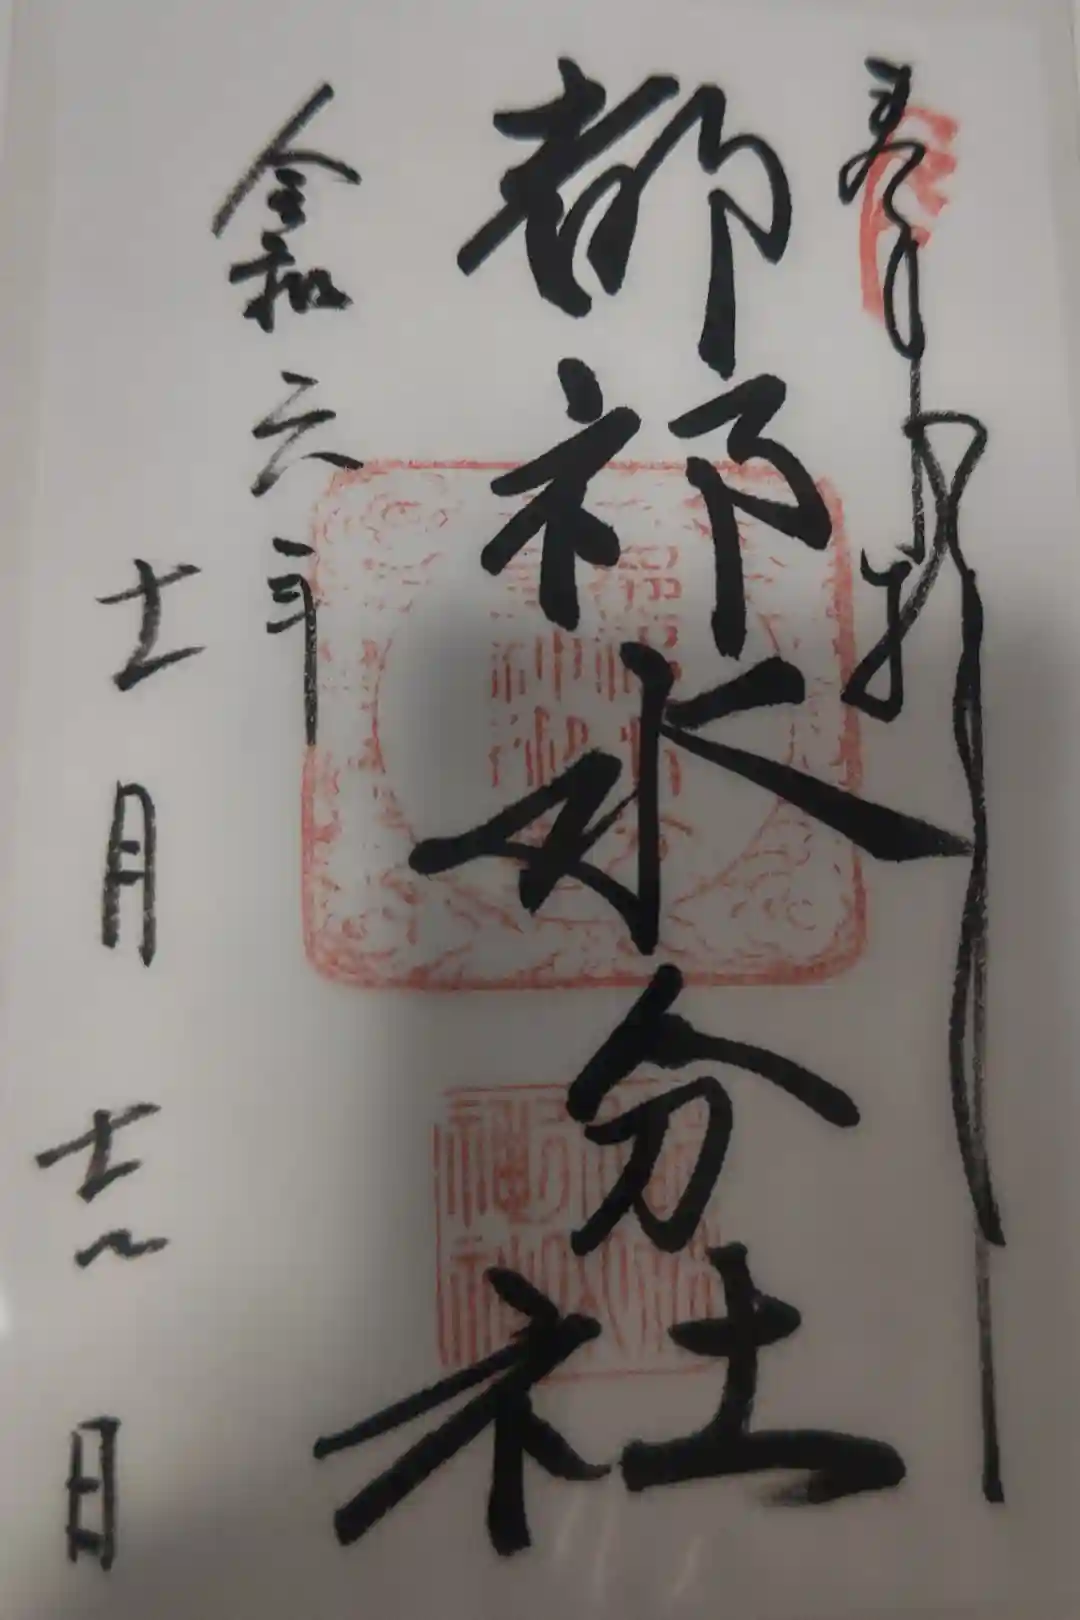 奉拝
都祁水分社
令和六年
十一月十二日